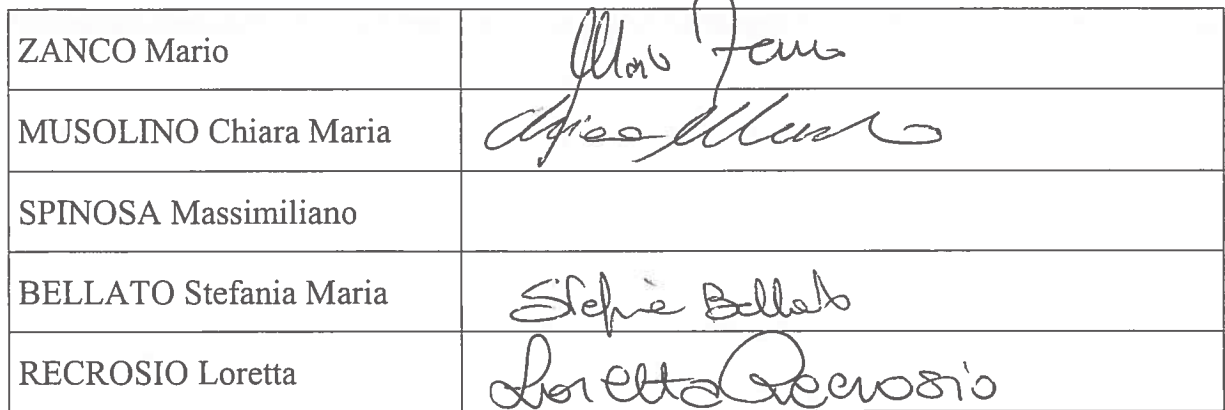 ZANCO Mario
MUSOLINO Chiara Maria
SPINOSA Massimiliano
BELLATO Stefania Maria Stefania Bellato
RECROSIO Loretta Loretta Recrosio